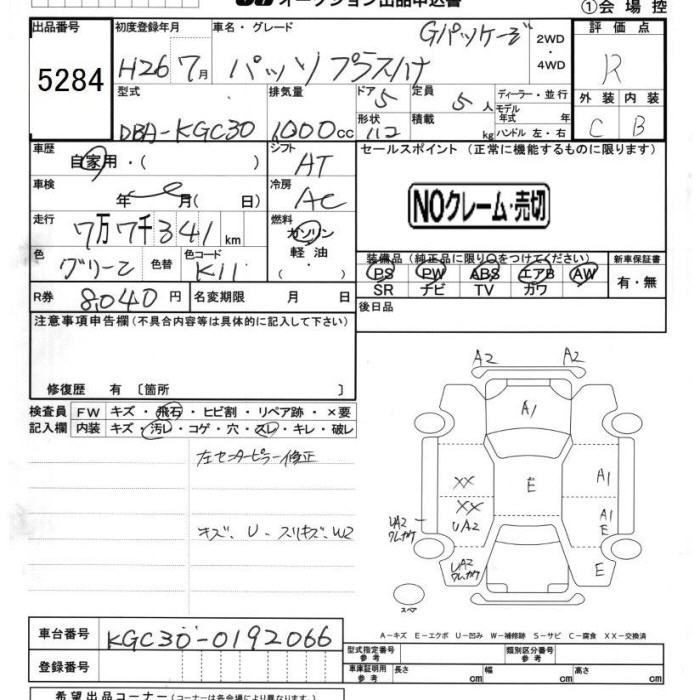 オークション出品申込書
①会場控
出品番号 初度登録年月 車名・グレード Gパッケージ 2WD ・ 4WD 評価点
5284 H26 7月 パッソ プラスハナ R
型式 排気量 ドア 5 定員 5人 ディーラー・並行 外装 内装
DBA-KGC30 1,000cc 形状 112 積載 kg モデル年式 年 ハンドル 左・右 C B
車歴 自家用・( ) シフト AT セールスポイント (正常に機能するものに限ります)
車検 年 月( 日) 冷房 AC NOクレーム・売切
走行 7万7千341km 燃料 ガソリン 軽油 ・( )
色 グリーン 色替 色コード K11
装備品(純正品に限り○をつけてください) 新車保証書
PS PW ABS エアB AW 有・無
SR ナビ TV カワ
R券 8,040円 名変期限 月 日 後日品
注意事項申告欄(不具合内容等は具体的に記入して下さい)
修復歴 有 〔箇所 〕
検査員 FW キズ・飛石・ヒビ割・リペア跡・×要
記入欄 内装 キズ・汚レ・コゲ・穴・スレ・キレ・破レ
左センターピラー修正
キズ、U・スリキズ、W2
A2 A2
A1
XX E A1
XX A1
UA2 E
UA2 ワレカケ
UA2 ワレカケ E
スペア
A-キズ E-エクボ U-凹み W-補修跡 S-サビ C-腐食 XX-交換済
車台番号 KGC30-0192066
登録番号
型式指定番号 参考 類別区分番号 参考
車庫証明用 参考 長さ cm 幅 cm 高さ cm
希望出品コーナー(コーナーは各会場により異なります)